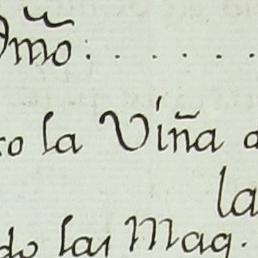 om̃o: . . . . .
ro la Viña a
la
do las Mag.